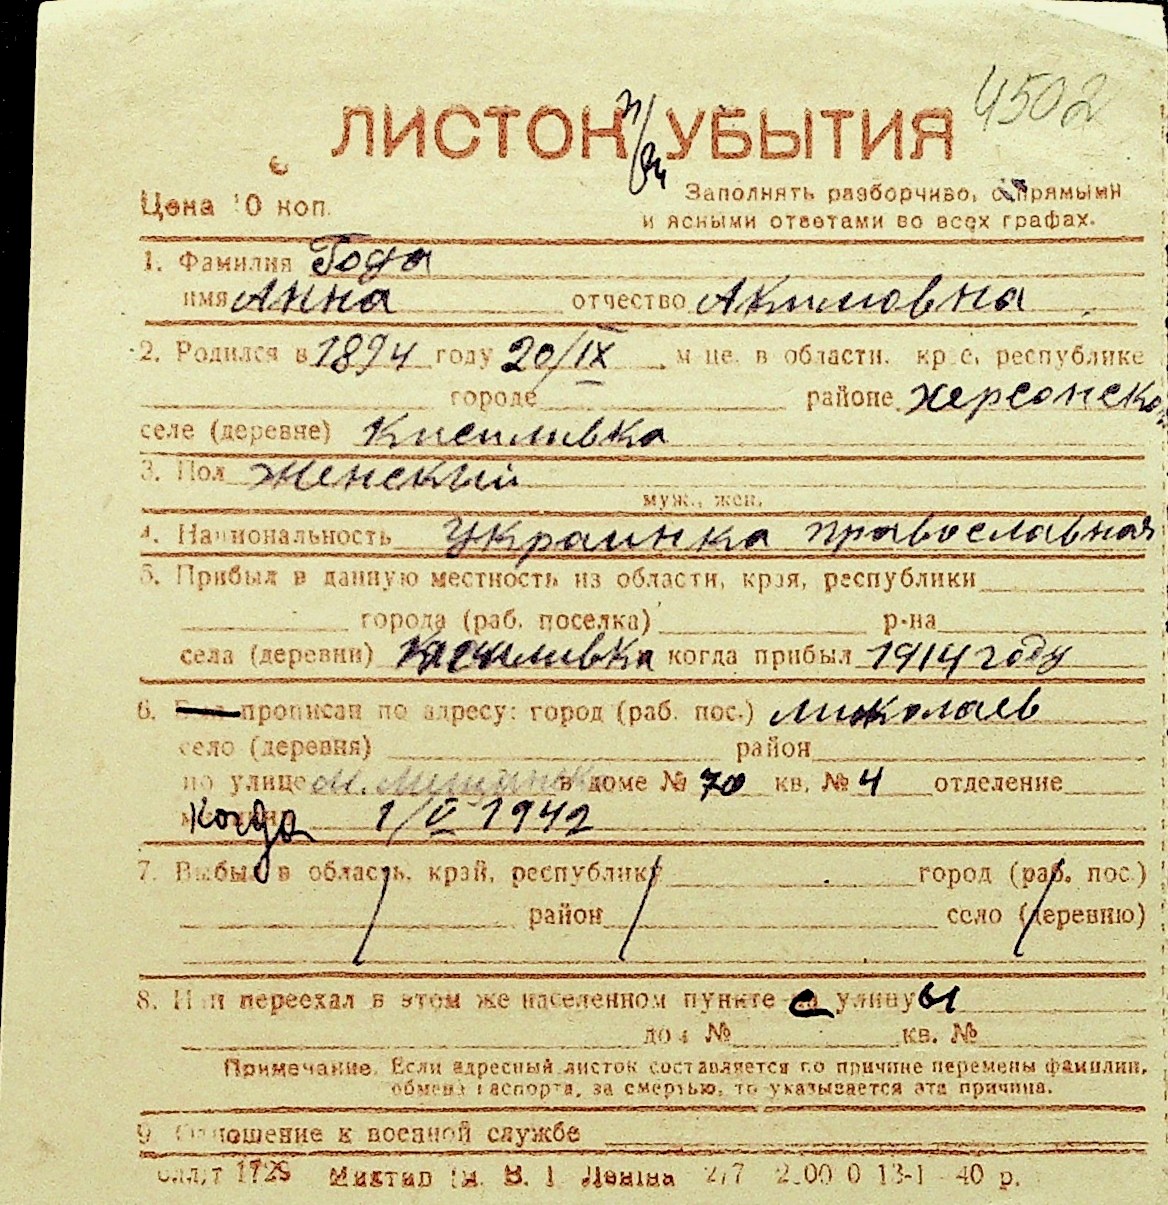 4502
ЛИСТОН УБЫТИЯ
Цена 10 коп.
Заполнять разборчиво, с прямыми
и ясными ответами во всех графах.
1. Фамилия Года
имя Анна отчество Акимовна
2. Родился в 1894 году 20/IX м-це, в области, крае, республике
городе районе Херсонском
селе (деревне) Кисиливка
3. Пол Женский
муж., жен.
4. Национальность Украинка православная
5. Прибыл в данную местность из области, края, республики
города (раб. поселка) р-на
села (деревни) Кисиливка когда прибыл 1914 году
6. прописан по адресу: город (раб. пос.) Николаев
село (деревня) район
по улице М. в доме № 70 кв. № 4 отделение
Когда 1/V 1942
7. Выбыл в область, край, республику город (раб. пос.)
район село (деревню)
8. Или переехал в этом же населенном пункте с улицы
дом № кв. №
Примечание. Если адресный листок составляется по причине перемены фамилии,
обмена паспорта, за смертью, то указывается эта причина.
9. Отношение к военной службе
1729 Миктир Ім. В. І. Леніна 40 р.